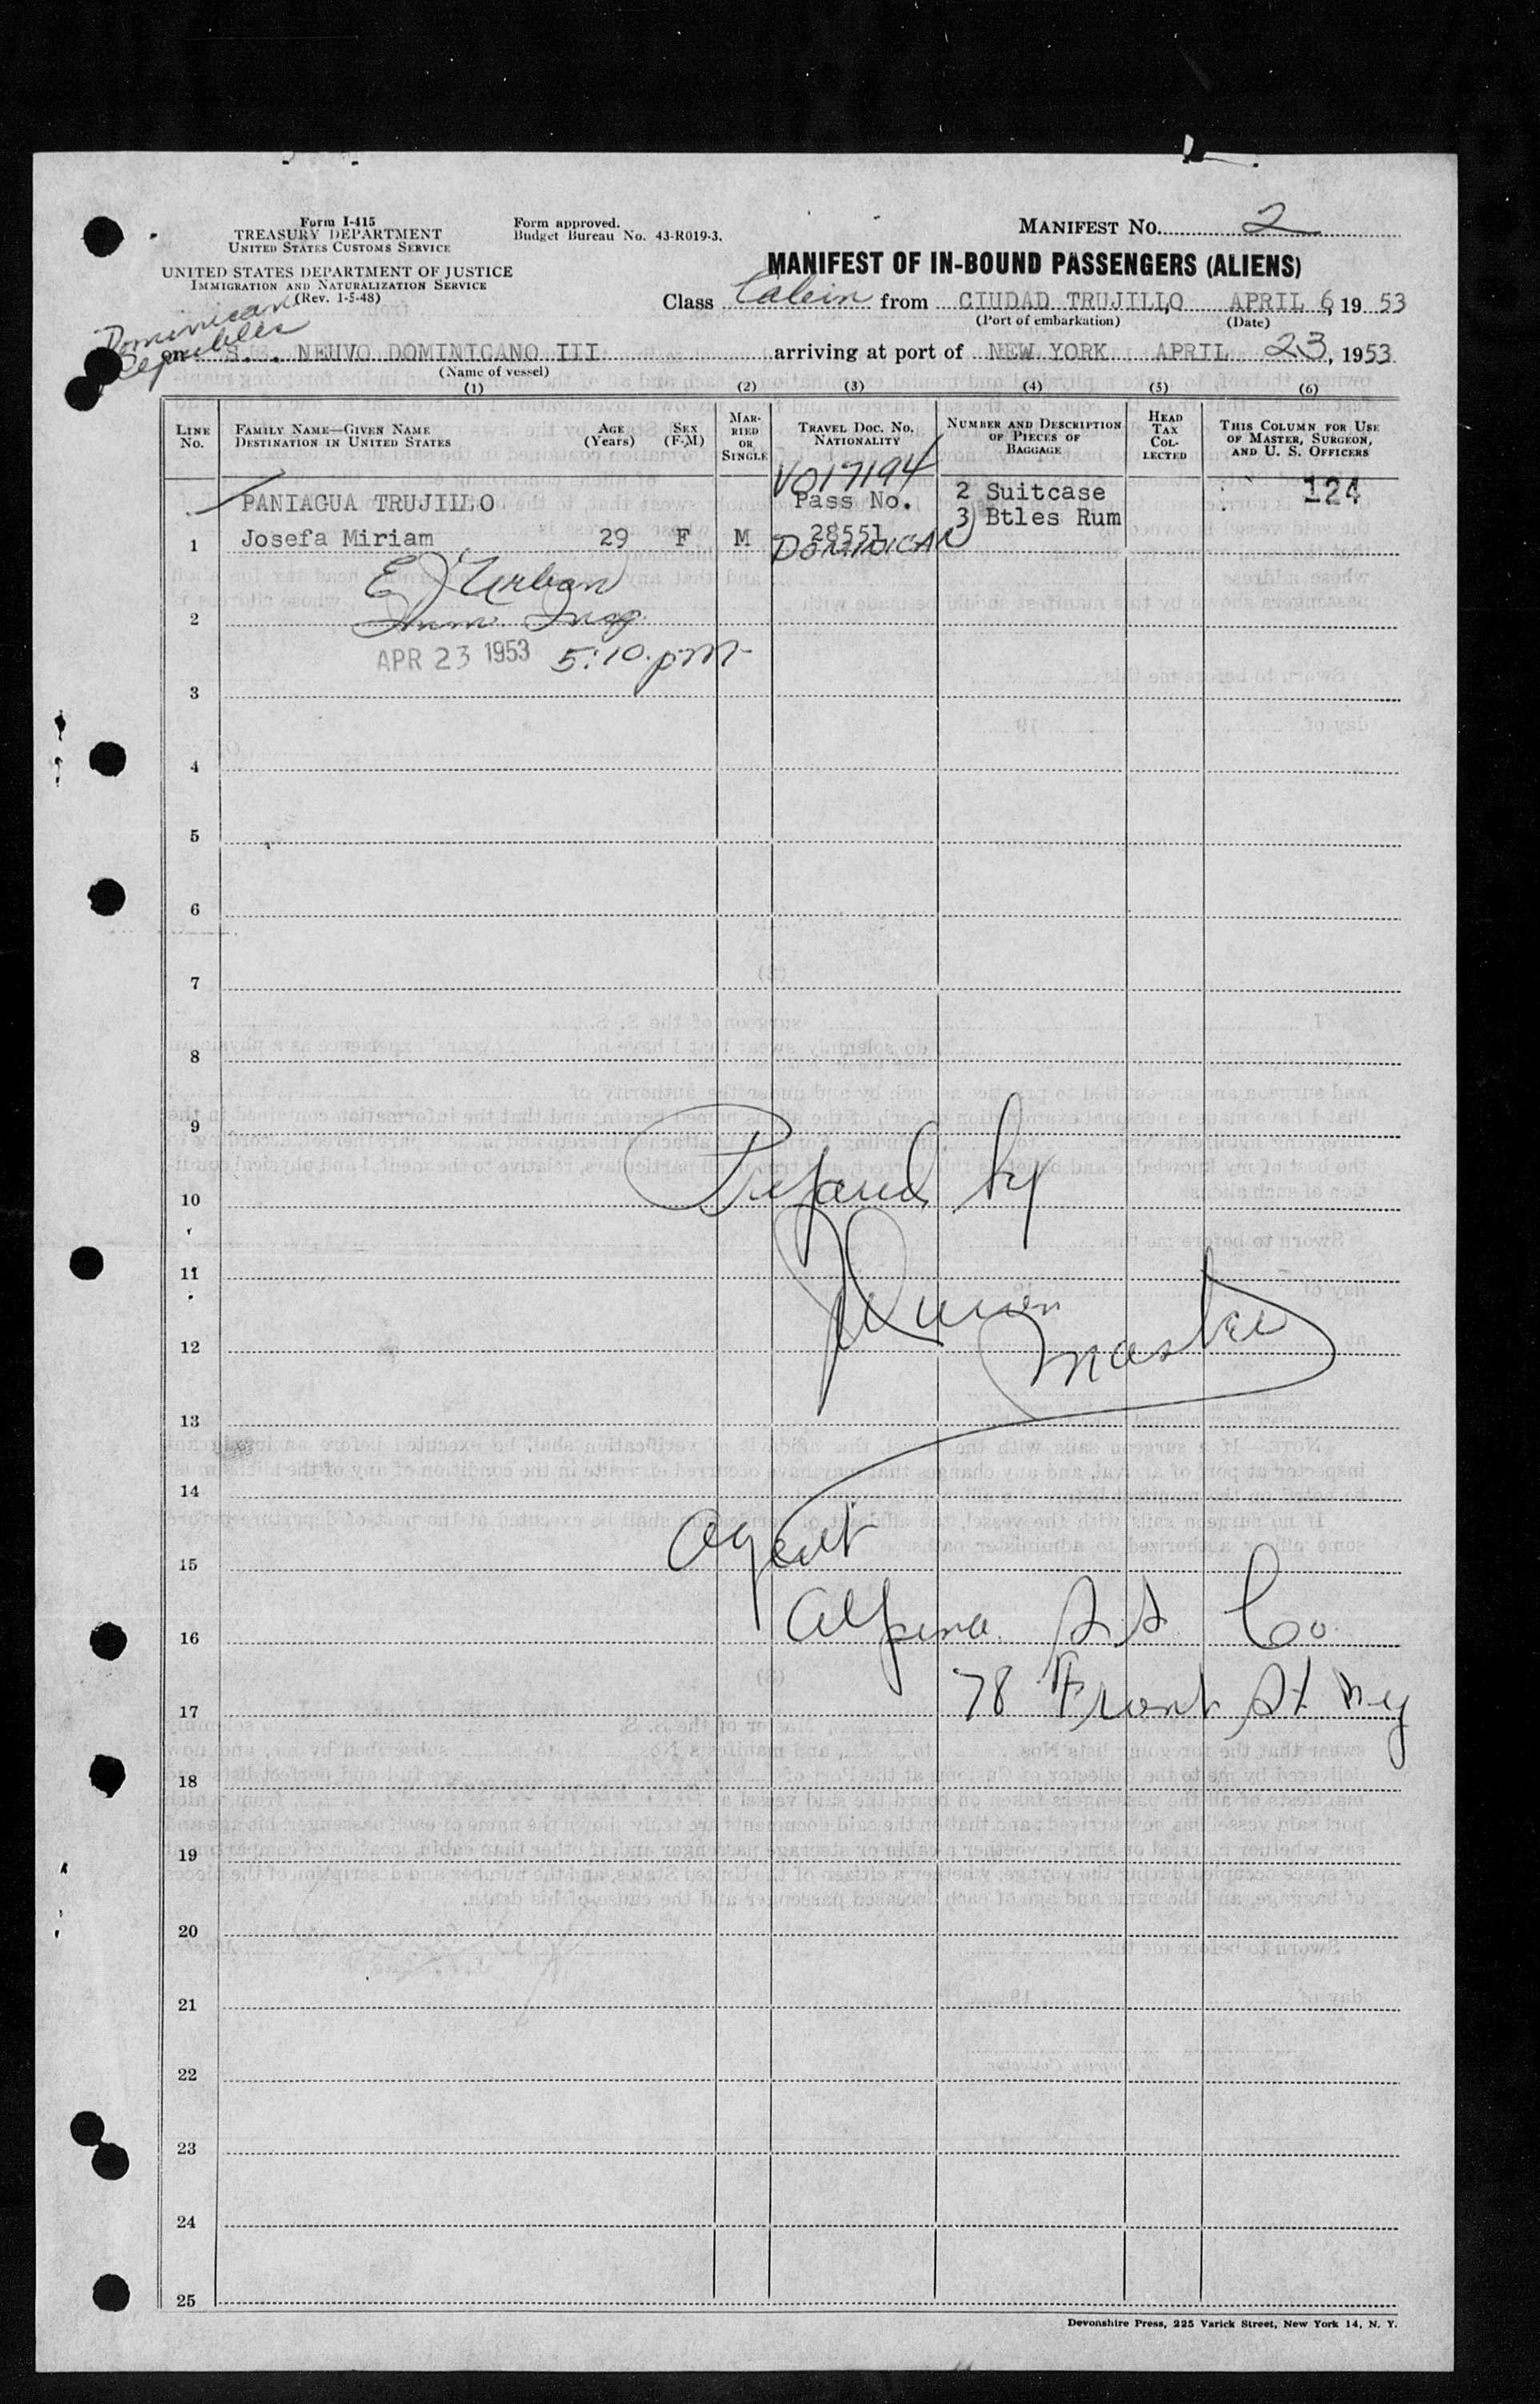 Form I-415
TREASURY DEPARTMENT
UNITED STATES CUSTOMS SERVICE
UNITED STATES DEPARTMENT OF JUSTICE
IMMIGRATION AND NATURALIZATION SERVICE
(Rev. 1-5-48)
Form approved.
Budget Bureau No. 43-R019-3.
MANIFEST NO. 2
MANIFEST OF IN-BOUND PASSENGERS (ALIENS)
Class Cabin from CIUDAD TRUJILLO, APRIL 6, 19 53
(Port of embarkation) (Date)
Dominican
Republic
on S.S. NEUVO DOMINICANO III arriving at port of NEW YORK APRIL 23, 1953
(Name of vessel)
(1) (2) (3) (4) (5) (6)
LINE No. FAMILY NAME—GIVEN NAME DESTINATION IN UNITED STATES AGE (Years) SEX (F-M) MARRIED OR SINGLE TRAVEL DOC. NO. NATIONALITY NUMBER AND DESCRIPTION OF PIECES OF BAGGAGE HEAD TAX COLLECTED THIS COLUMN FOR USE OF MASTER, SURGEON, AND U. S. OFFICERS
V017194
PANIAGUA TRUJILLO Pass No. 2 Suitcase 124
3 Btles Rum
1 Josefa Miriam 29 F M 28551
DOMINICAN
E J Urban
2 Imm. Insp.
APR 23 1953 5:10 pm
3
4
5
6
7
8
9
10 Prepared by
11
12 Master
13
14
15 Agent
16 Alpina S.S. Co.
17 78 Front St N.Y
18
19
20
21
22
23
24
25
Devonshire Press, 225 Varick Street, New York 14, N. Y.